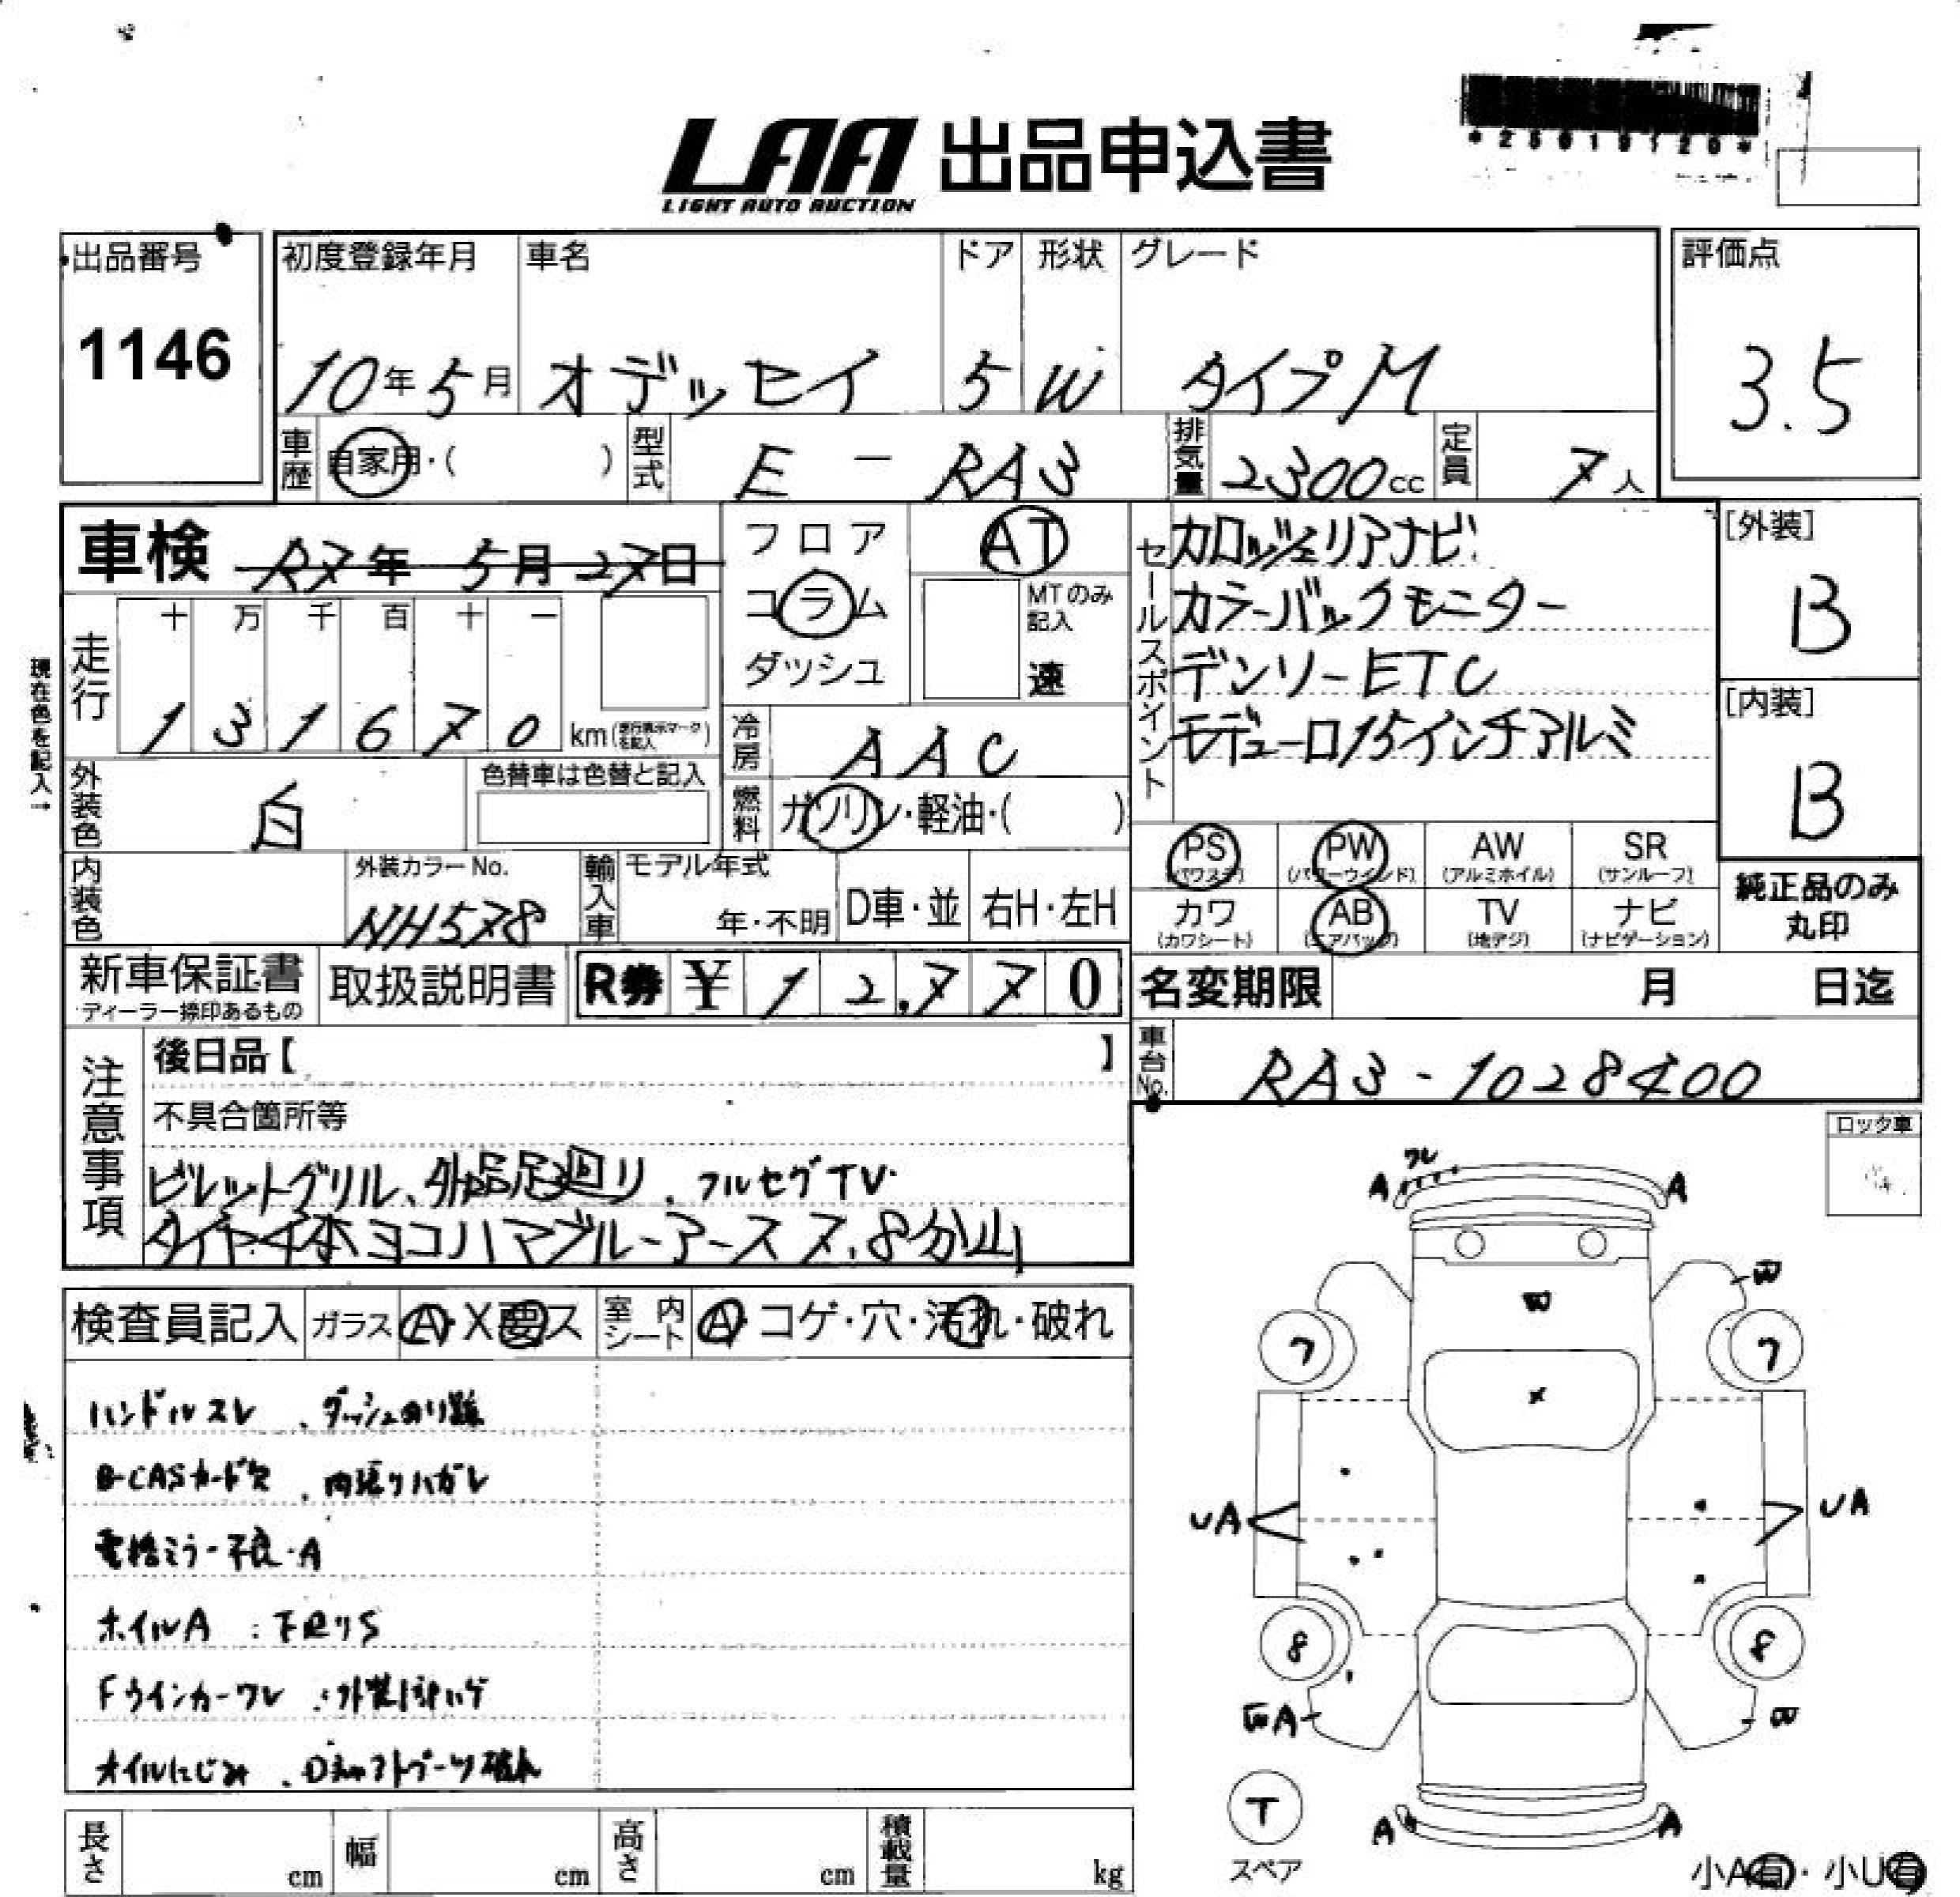 LAA 出品申込書
LIGHT AUTO AUCTION
*25019120*
出品番号
1146
初度登録年月
10年5月
車名
オデッセイ
ドア
5
形状
W
グレード
タイプM
評価点
3.5
車歴
自家用・( )
型式
E - RA3
排気量
2300cc
定員
7人
車検 R7年 5月 27日
フロア
コラム
ダッシュ
AT
MTのみ記入
速
セールスポイント
カロッツェリアナビ
カラーバックモニター
デンソーETC
モデューロ15インチアルミ
[外装]
B
[内装]
B
現在色を記入→
走行
十 万 千 百 十 一
1 3 1 6 7 0 km (走行表示マークを記入)
冷房
AAC
外装色
白
色替車は色替と記入
燃料
ガソリン・軽油・( )
PS (パワステ)
PW (パワーウインド)
AW (アルミホイル)
SR (サンルーフ)
カワ (カワシート)
AB (エアバッグ)
TV (地デジ)
ナビ (ナビゲーション)
純正品のみ丸印
内装色
外装カラーNo.
NH578
輸入車
モデル年式
年・不明
D車・並
右H・左H
新車保証書
ディーラー捺印あるもの
取扱説明書
R券 ¥ 12,770
名変期限 月 日迄
車台No.
RA3-1028400
注意事項
後日品【 】
不具合箇所等
ビレットグリル、外品足廻り、フルセグTV.
タイヤ4本ヨコハマブルーアース 7.8分山
ロック車
検査員記入
ガラス A・X要ス
室内シート A・コゲ・穴・汚れ・破れ
ハンドルスレ 、ダッシュのり跡
B-CASカード欠 、内張りハガレ
電格ミラー不良・A
ホイルA 、下廻りS
Fウインカーワレ 、外装塗装ハゲ
オイルにじみ 、Dシャフトブーツ破れ
ワレ
A
A
W
W
7
7
X
UA
UA
8
8
WA
W
T
スペア
A
A
小A有・小U有
長さ cm
幅 cm
高さ cm
積載量 kg